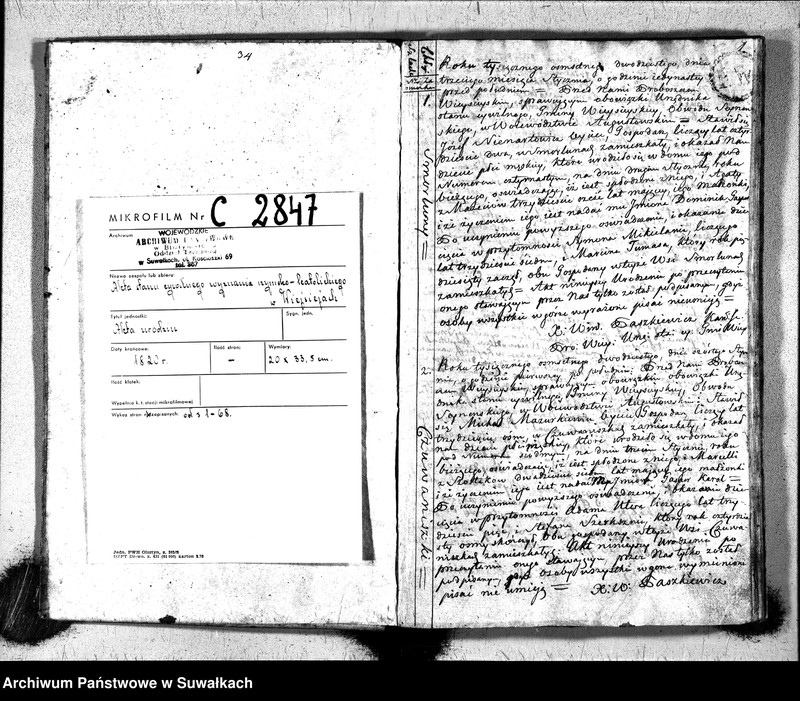 34
MIKROFILM Nr C 2847
Archiwum
WOJEWÓDZKIE
ARCHIWUM
w Suwałkach, ul. Kościuszki 69
Nazwa zespołu lub zbioru:
Akta stanu cywilnego wyznania rzymsko-katolickiego
w Wiejsiejach
Tytuł jednostki:
Sygn. jedn.
Akta urodzin
Daty krańcowe:
Ilość stron:
Wymiary:
1820 r.
—
20 x 33,5 cm.
Ilość klatek:
Wypełnia k. t. stacji mikrofilmowej
Wykaz stron od s 1-68.
1
1.
Smorluny =
Roku tysiącznego osmsetnego dwudziestego, dnia
trzeciego miesiąca Stycznia, o godzinie jedynastey
przed południem = Przed Nami Proboszczem
Wieysieyskim, sprawującym obowiązki Urzędnika
stanu cywilnego, Gminy Wieysieyskiey, Obwodu Seynen-
skiego, w Woiewództwie Augustowskim = Stawił się
Józef bycie, Gospodarz, liczący lat czter-
dzieście dwa, w Smorlunach zamieszkały, i okazał Nam
dziecie płci męskiey, które urodziło się w domu iego pod
Numerem czternastym, na dniu drugim Stycznia, roku
bieżącego, oświadczając, iż iest spłodzone z niego, i Agaty
lat maiącey, iego małżonki,
i że życzeniem iego iest nadać mu Imione Dominik
Po uczynieniu powyższego oświadczenia, i okazaniu dzie-
cięcia w przytomności Szymona liczącego
lat trzydzieście siedm, i Marcina Tumasa, który rok pię-
dziesiąty zaczął, obu Gospodarzy w teyże Wsi Smorlunach
zamieszkałych = Akt ninieyszy Urodzenia po przeczytaniu
onego stawaiącym przez Nas tylko został podpisany, gdyż
osoby wszystkie w górze wyrażone pisać nieumieią =
X: Win. Daszkiewicz
2.
Czuwaniszki =
Roku tysiącznego osmsetnego dwudziestego, dnia szóstego Sty-
cznia, o godzinie pierwszey po południu; Przed Nami Probosz-
czem Wieysieyskim, sprawującym obowiązki Urzę-
dnika stanu cywilnego Gminy Wieysieyskiey, Obwodu
Seynenskiego, w Woiewództwie Augustowskim; Stawił
się Michał Mazurkiewicz bycie Gospodarz, liczący lat
trzydzieście osm, w Czuwaniszkach zamieszkały, i okazał
nam dziecie płci męskiey, które urodziło się w domu iego
pod Numerem siódmym na dniu trzecim Stycznia, roku
bieżącego, oświadczając, iż iest spłodzone z niego, i Marcelli
lat maiącey, iego małżonki
i że życzeniem iego iest nadać mu Imiona Karol =
Po uczynieniu powyższego oświadczenia, i okazaniu dzie-
cięcia w przytomności Adama liczącego lat trzy-
dzieści pięć, i Stefana który rok czterdzie-
sty osmy skończył, obu gospodarzy w teyże Wsi Czuwa-
niszkach zamieszkałych; Akt ninieyszy Urodzenia po
przeczytaniu onego stawaiącym przez Nas tylko został
podpisany, gdyż osoby wszystkie w górze wymienione
pisać nie umieią =
X: W: Daszkiewicz
Archiwum Państwowe w Suwałkach